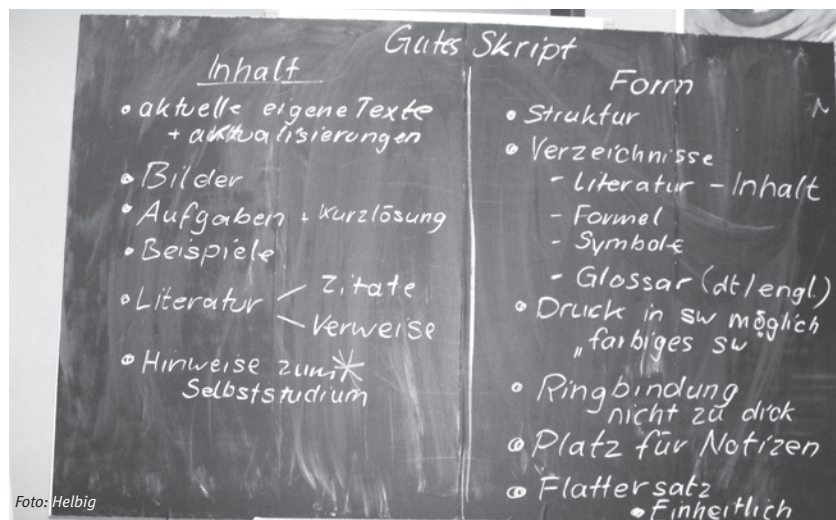 Gutes Skript
Inhalt
• aktuelle eigene Texte
+ aktualisierungen
• Bilder
• Aufgaben + Kurzlösung
• Beispiele
• Literatur
Zitate
Verweise
• Hinweise zum *
Selbststudium
Form
• Struktur
• Verzeichnisse
- Literatur - Inhalt
- Formel
- Symbole
- Glossar (dt/engl.)
• Druck in sw möglich
„farbiges sw"
• Ringbindung
nicht zu dick
• Platz für Notizen
• Flattersatz
• Einheitlich
Foto: Helbig